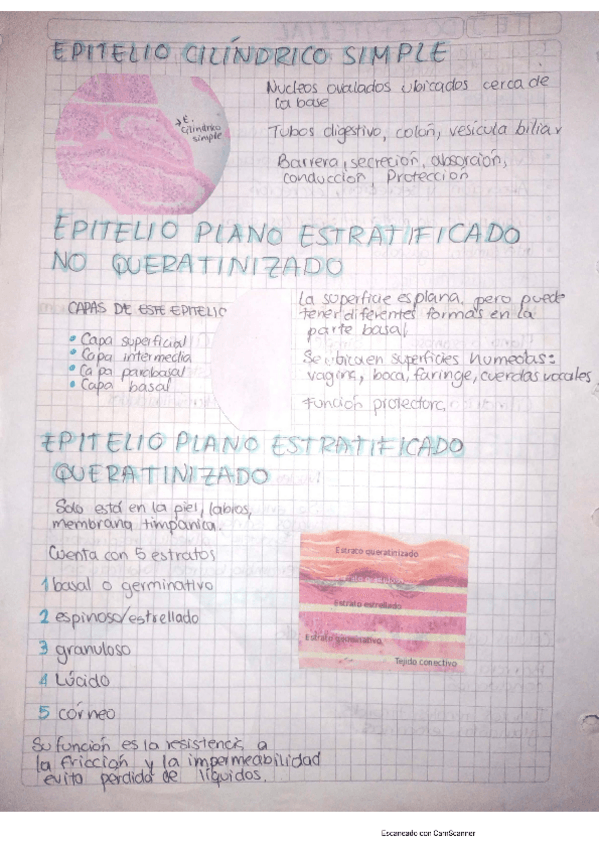 EPITELIO CILÍNDRICO SIMPLE
Nucleos ovalados ubicados cerca de
la base
→ E.
Cilíndrico
simple
Tubos digestivo, colon, vesícula biliar
Barrera, secreción, absorción,
conducción, Protección
EPITELIO PLANO ESTRATIFICADO
NO QUERATINIZADO
CAPAS DE ESTE EPITELIO
• Capa superficial
• Capa intermedia
• Capa parabasal
• Capa basal
La superficie es plana, pero puede
tener diferentes formas en la
parte basal
Se ubica en superficies humedas:
vagina, boca, faringe, cuerdas vocales
Función protectora.
EPITELIO PLANO ESTRATIFICADO
QUERATINIZADO
Solo está en la piel, labios,
membrana timpánica.
Cuenta con 5 estratos
1 basal o germinativo
2 espinoso/estrellado
3 granuloso
4 Lúcido
5 córneo
Su función es la resistencia a
la fricción y la impermeabilidad
evita perdida de líquidos.
Estrato queratinizado
Estrato estrellado
Estrato germinativo
Tejido conectivo
Escaneado con CamScanner